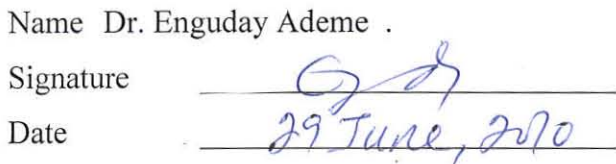 Name Dr. Enguday Ademe .
Signature
Date 29 June, 2010